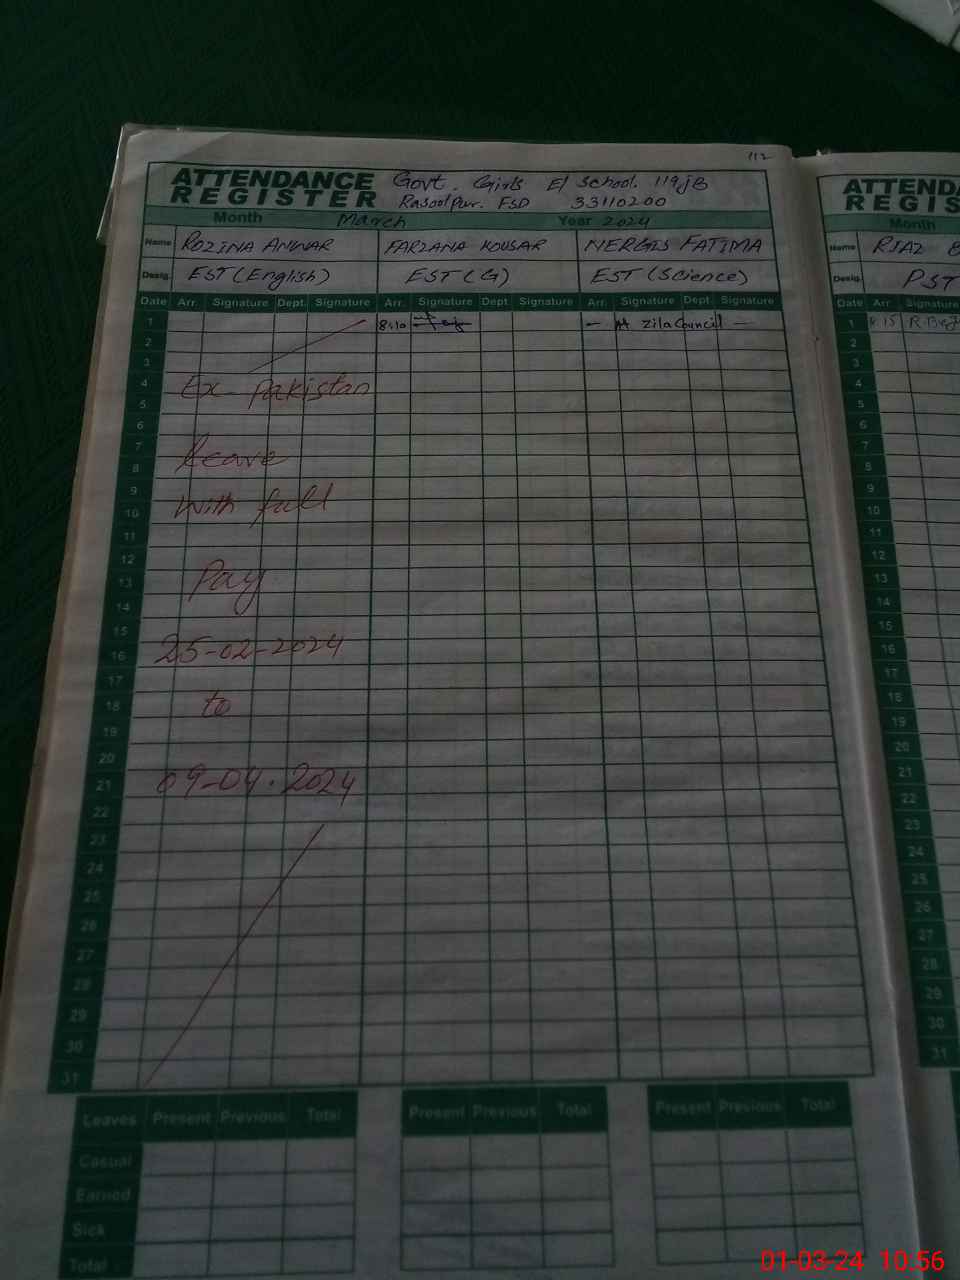 112
ATTENDANCE REGISTER
Govt. Girls El School. 119 JB
Rasool Pur. FSD 33110200
Month March Year 2024
Name ROZINA ANWAR FARZANA KOUSAR NERGIS FATIMA
Desig. EST (English) EST (G) EST (Science)
Date Arr. Signature Dept. Signature Arr. Signature Dept. Signature Arr. Signature Dept. Signature
1 8:10 At Zila Council
2
3
4 Ex-Pakistan
5
6
7
8 Leave
9
10 With full
11
12
13 Pay
14
15
16 25-02-2024
17
18 to
19
20
21 09-04.2024
22
23
24
25
26
27
28
29
30
31
Leaves Present Previous Total Present Previous Total Present Previous Total
Casual
Earned
Sick
Total
ATTENDA
REGIS
Month
Name RIAZ B
Desig. PST
Date Arr. Signature
1 15
2
3
4
5
6
7
8
9
10
11
12
13
14
15
16
17
18
19
20
21
22
23
24
25
26
27
28
29
30
31
01-03-24 10.56